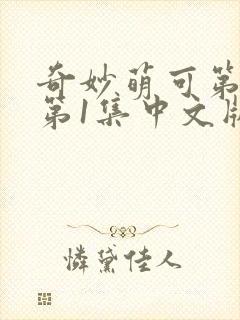 奇妙萌可第
第1集中文版
憐黛佳人